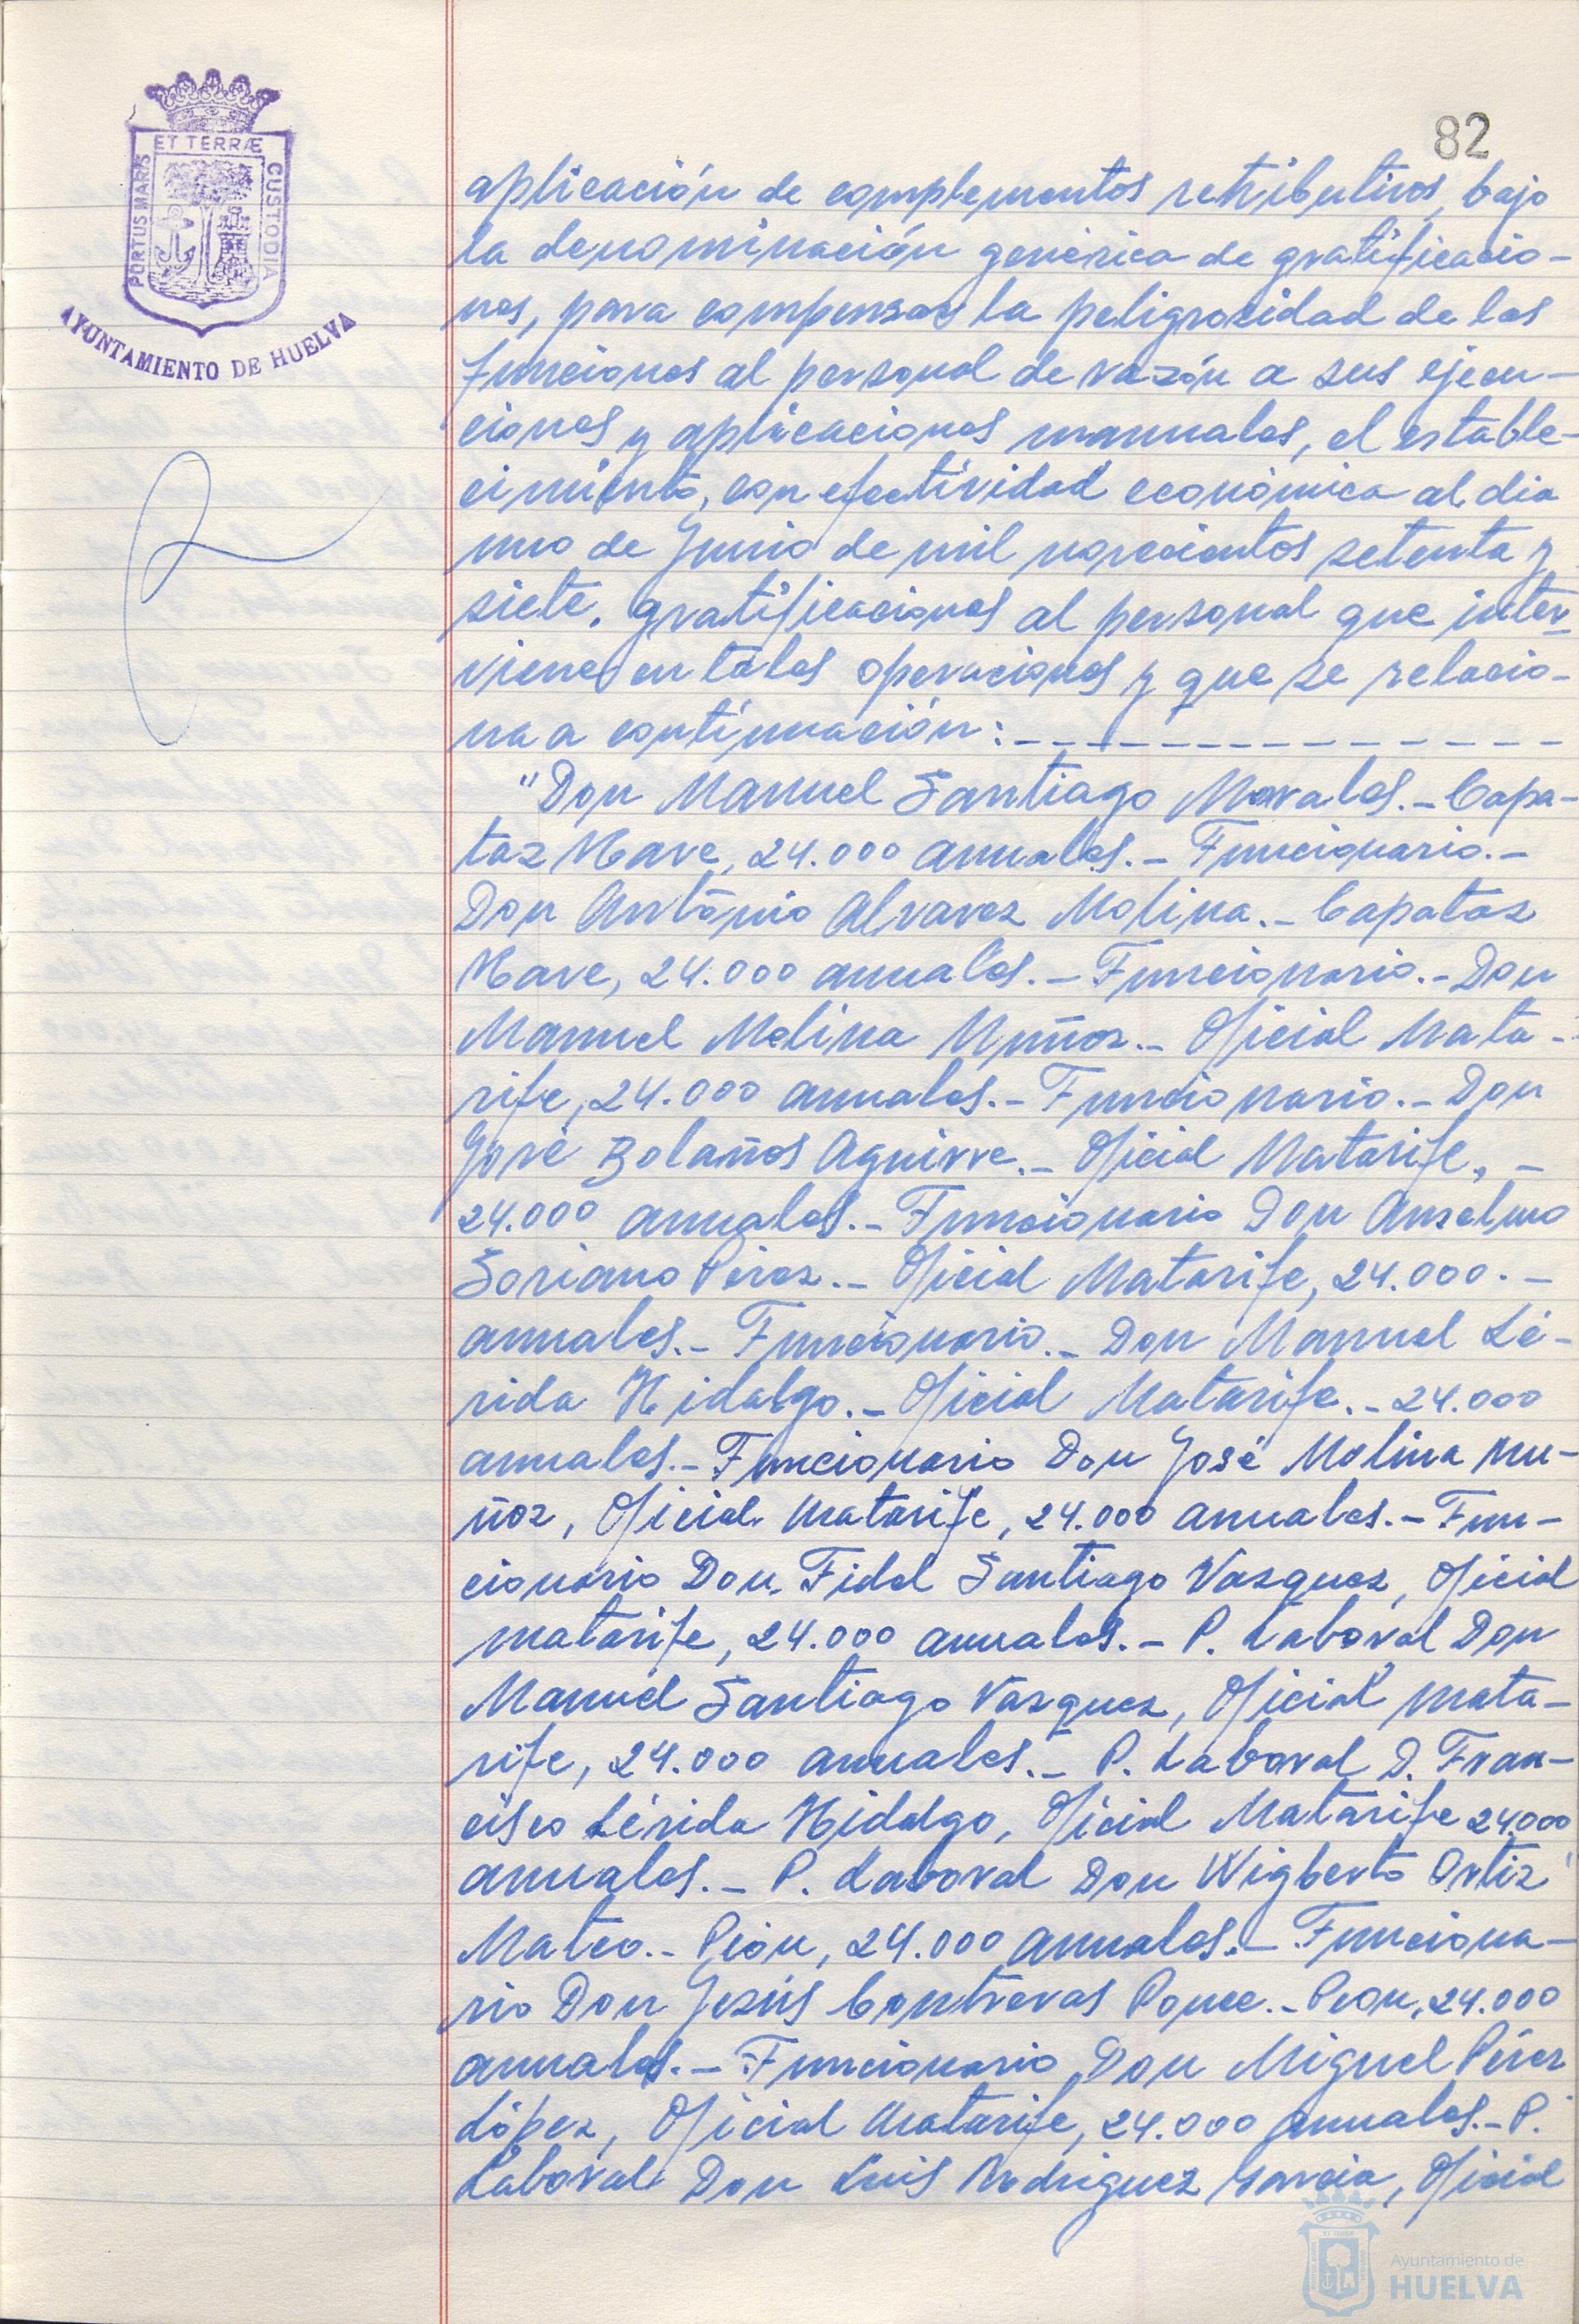 82
ET TERRÆ
PORTUS MARIS
CUSTODIA
AYUNTAMIENTO DE HUELVA
aplicación de complementos retributivos, bajo
la denominación genérica de gratificacio-
nes, para compensar la peligrosidad de las
funciones al personal de razón a sus ejecu-
ciones y aplicaciones manuales, el estable-
cimiento, con efectividad económica al dia
uno de Junio de mil novecientos setenta y
siete, gratificaciones al personal que inter-
viene en tales operaciones y que se relacio-
na a continuación:
"Don Manuel Santiago Morales.- Capa-
taz Nave, 24.000 anuales.- Funcionario.-
Don Antonio Alvarez Molina.- Capataz
Nave, 24.000 anuales.- Funcionario.- Don
Manuel Molina Muñoz.- Oficial Mata-
rife, 24.000 anuales.- Funcionario.- Don
José Bolaños Aguirre.- Oficial Matarife, -
24.000 anuales.- Funcionario Don Anselmo
Soriano Pérez.- Oficial Matarife, 24.000.-
anuales.- Funcionario.- Don Manuel Lé-
rida Hidalgo.- Oficial Matarife.- 24.000
anuales.- Funcionario Don José Molina Mu-
ñoz, Oficial Matarife, 24.000 anuales.- Fun-
cionario Don Fidel Santiago Vazquez, Oficial
matarife, 24.000 anuales.- P. Laboral Don
Manuel Santiago Vázquez, Oficial mata-
rife, 24.000 anuales.- P. Laboral D. Fran-
cisco Lérida Hidalgo, Oficial Matarife 24.000
anuales.- P. Laboral Don Wigberto Ortiz
Mateo.- Peón, 24.000 anuales.- Funciona-
rio Don Jesús Contreras Ponce.- Peon, 24.000
anuales.- Funcionario Don Miguel Pérez
López, Oficial Matarife, 24.000 anuales.- P.
Laboral Don Luis Rodriguez Garcia, Oficial
Ayuntamiento de
HUELVA